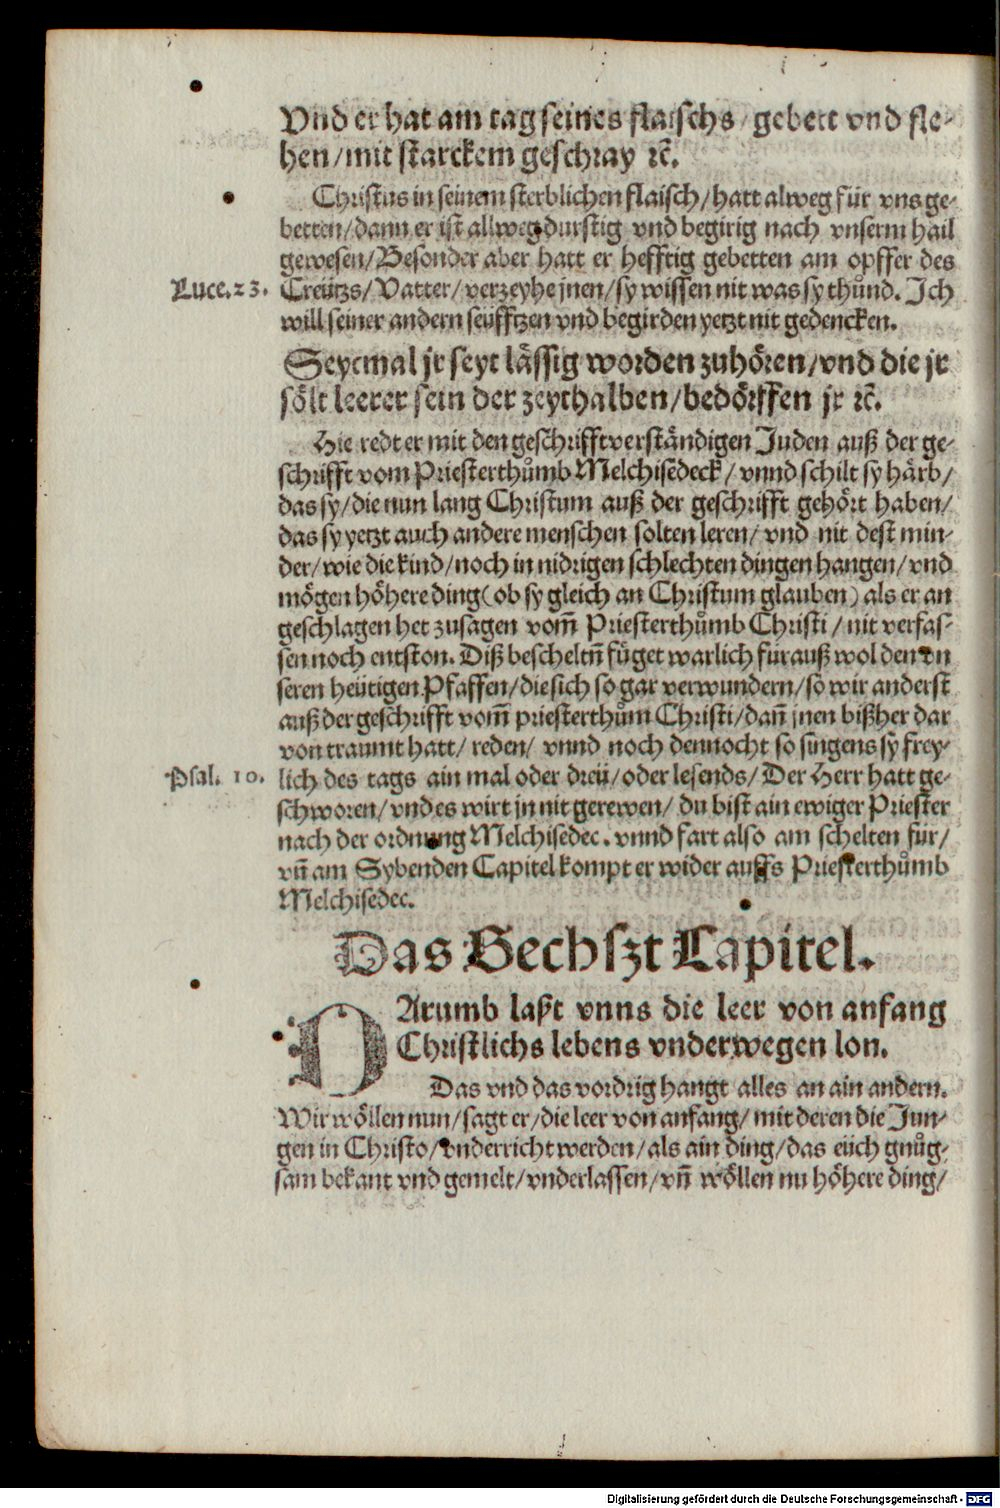 Vnd er hat am tag seines flaischs / gebett vnd fle-
hen / mit starckem geschray ꝛc̃.
Christus in seinem sterblichen flaisch / hatt alweg für vns ge-
betten / dann er ist allweg durstig vnd begirig nach vnserm hail
gewesen / Besonder aber hatt er hefftig gebetten am opffer des
Luce. 23. Creützs / Vatter / verzeyhe jnen / sy wissen nit was sy thůnd. Ich
will seiner andern seüfftzen vnd begirden yetzt nit gedencken.
Seytmal jr seyt lässig worden zuhören / vnd die jr
sölt leerer sein der zeythalben / bedörffen jr ꝛc̃.
Hie redt er mit den geschrifftverständigen Juden auß der ge-
schrifft vom Priesterthůmb Melchisedeck / vnnd schilt sy härb /
das sy / die nun lang Christum auß der geschrifft gehört haben /
das sy yetzt auch andere menschen solten leren / vnd nit dest min-
der / wie die kind / noch in nidrigen schlechten dingen hangen / vnd
mögen höhere ding (ob sy gleich an Christum glauben) als er an
geschlagen het zusagen vom̃ Priesterthůmb Christi / nit verfas-
sen noch entston. Diß bescheltñ füget warlich fürauß wol den vn
seren heütigen Pfaffen / die sich so gar verwundern / so wir anderst
auß der geschrifft vom̃ priesterthům Christi / dañ jnen bißher dar
von traumt hatt / reden / vnnd noch dennocht so singens sy frey-
Psal. 10. lich des tags ain mal oder dreü / oder lesends / Der Herr hatt ge-
schworen / vnd es wirt jn nit gerewen / du bist ain ewiger Priester
nach der ordnung Melchisedec. vnnd fart also am schelten für /
vñ am Sybenden Capitel kompt er wider auffs Priesterthůmb
Melchisedec.
Das Sechszt Capitel.
DArumb laßt vnns die leer von anfang
Christlichs lebens vnderwegen lon.
Das vnd das vordrig hangt alles an ain andern.
Wir wöllen nun / sagt er / die leer von anfang / mit deren die Jun-
gen in Christo / vnderricht werden / als ain ding / das eüch gnůg-
sam bekant vnd gemelt / vnderlassen / vñ wöllen nu höhere ding /
Digitalisierung gefördert durch die Deutsche Forschungsgemeinschaft - DFG